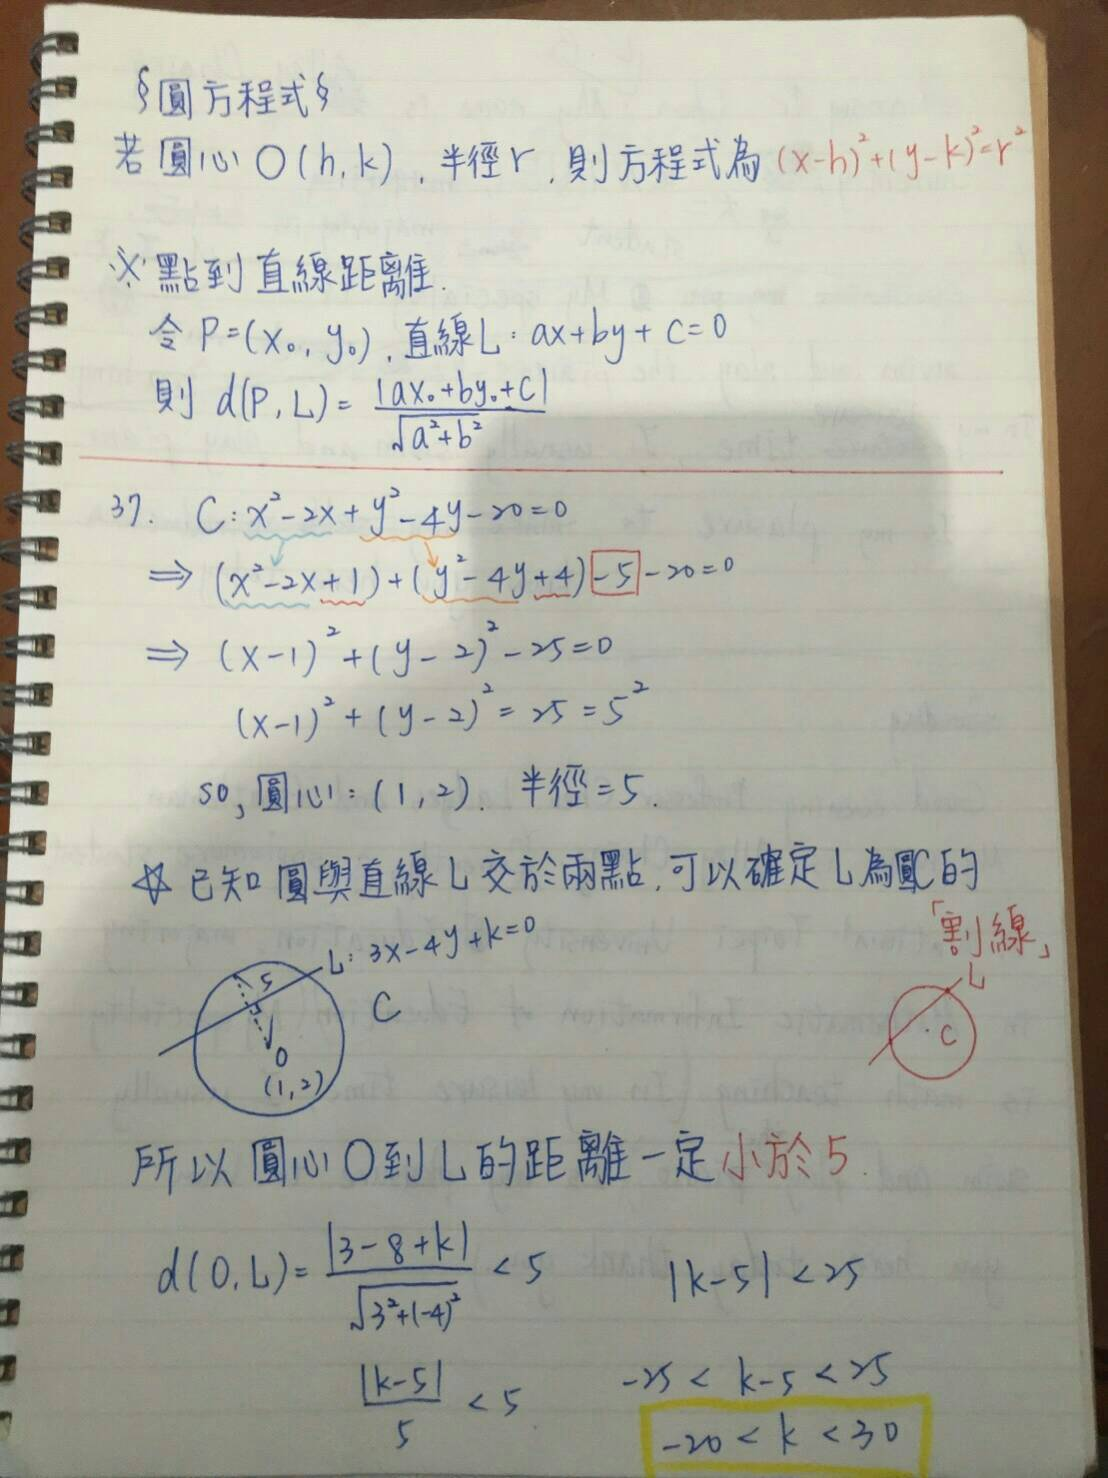 §圓方程式§
若圓心O(h,k),半徑r,則方程式為(x-h)²+(y-k)²=r²
※點到直線距離.
令P=(x₀,y₀),直線L:ax+by+c=0
則 d(P,L)=|ax₀+by₀+c|/√(a²+b²)
37. C:x²-2x+y²-4y-20=0
⇒(x²-2x+1)+(y²-4y+4)-5-20=0
⇒(x-1)²+(y-2)²-25=0
(x-1)²+(y-2)²=25=5²
so,圓心:(1,2).半徑=5.
☆已知圓與直線L交於兩點,可以確定L為圓C的
「割線」
L:3x-4y+k=0
5
C
O
(1,2)
L
C
所以圓心O到L的距離一定小於5.
d(O,L)=|3-8+k|/√(3²+(-4)²)<5
|k-5|/5<5
|k-5|<25
-25<k-5<25
-20<k<30